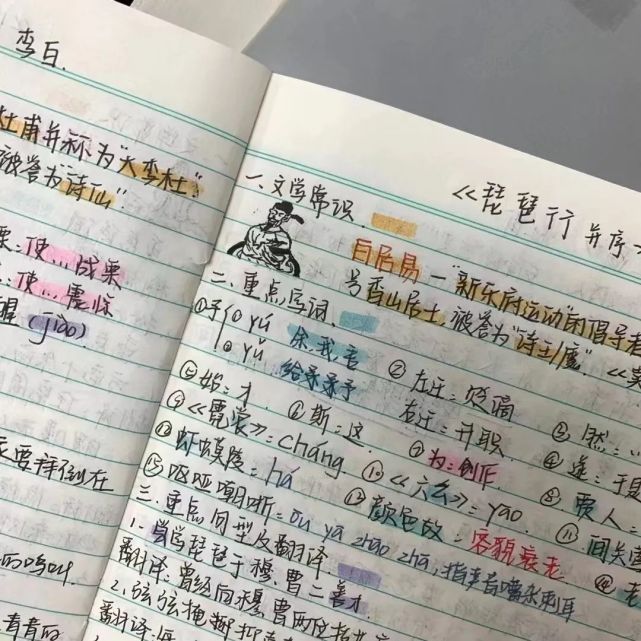 李白.
杜甫并称为"大李杜".
被誉为"诗仙"
栗:使…战栗
:使…震惊
醒(jiào)
要拜倒在
的鸣叫.
青青的
《琵琶行 并序》
一.文学常识.
白居易—"新乐府运动"的倡导者
号香山居士,被誉为"诗王/魔".
二.重点字词.
①予 ① yú 余,我,吾
② yǔ 给予,予
② 左迁:贬谪
右迁:升职
③ 然:
⑤ 始:才. ⑥ 斯:这. ⑦ 为:创作 ④ 遂:于是
⑨《霓裳》:cháng ⑧ 
⑪ 虾蟆陵:há ⑩《六幺》:yāo
⑬ 呕哑嘲哳:ōu yā zhāo zhā,指声音嘈杂刺耳
⑫ 颜色故:容貌衰老
三.重点句型及翻译
1.尝学琵琶于穆、曹二善才.
翻译:曾经向穆、曹两位
2.弦弦掩抑声声
翻译: